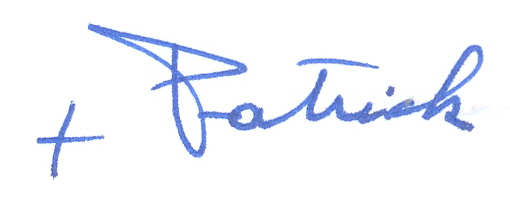 + Patrick